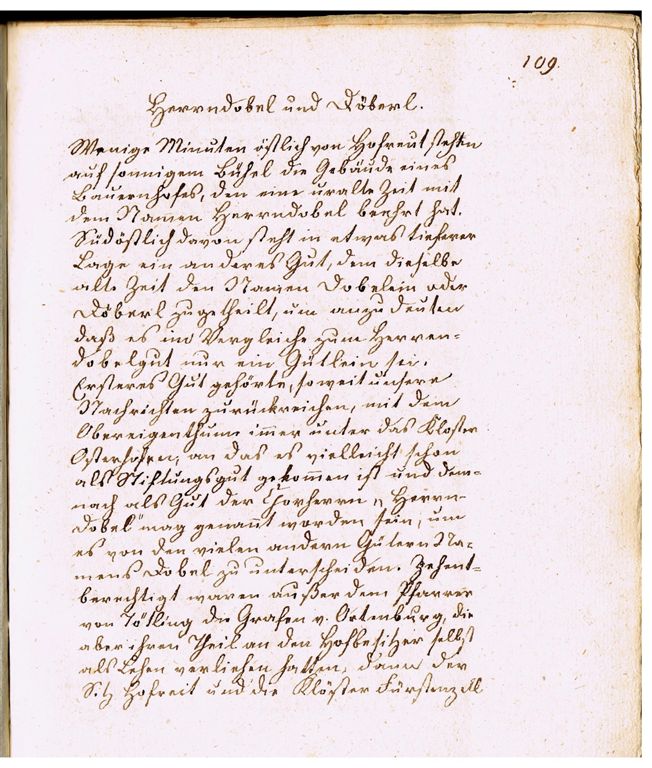 109.
Herrndobel und Döberl.
Wenige Minuten östlich von Hofreut stehen
auf sonnigem Bühel die Gebäude eines
Bauernhofes, den eine uralte Zeit mit
dem Namen Herrndobel beehrt hat.
Südöstlich davon steht in etwas tieferer
Lage ein anderes Gut, dem dieselbe
alte Zeit den Namen Dobelein oder
Döberl zugetheilt, um anzudeuten
daß es im Vergleiche zum Herren-
dobelgut nur ein Gütlein sei.
Ersteres Gut gehörte, soweit unsere
Nachrichten zurückreichen, mit dem
Obereigenthume immer unter das Kloster
Osterhofen, an das es vielleicht schon
als Stiftungsgut gekommen ist und dem-
nach als Gut der Chorherrn „Herrn-
dobel" mag genannt worden sein, um
es von den vielen andern Gütern Na-
mens Dobel zu unterscheiden. Zehent-
berechtigt waren außer dem Pfarrer
von Tötling die Grafen v. Ortenburg, die
aber ihren Theil an den Hofbesitzer selbst
als Lehen verliehen hatten, dann der
Sitz Hofreit und die Klöster Fürstenzell